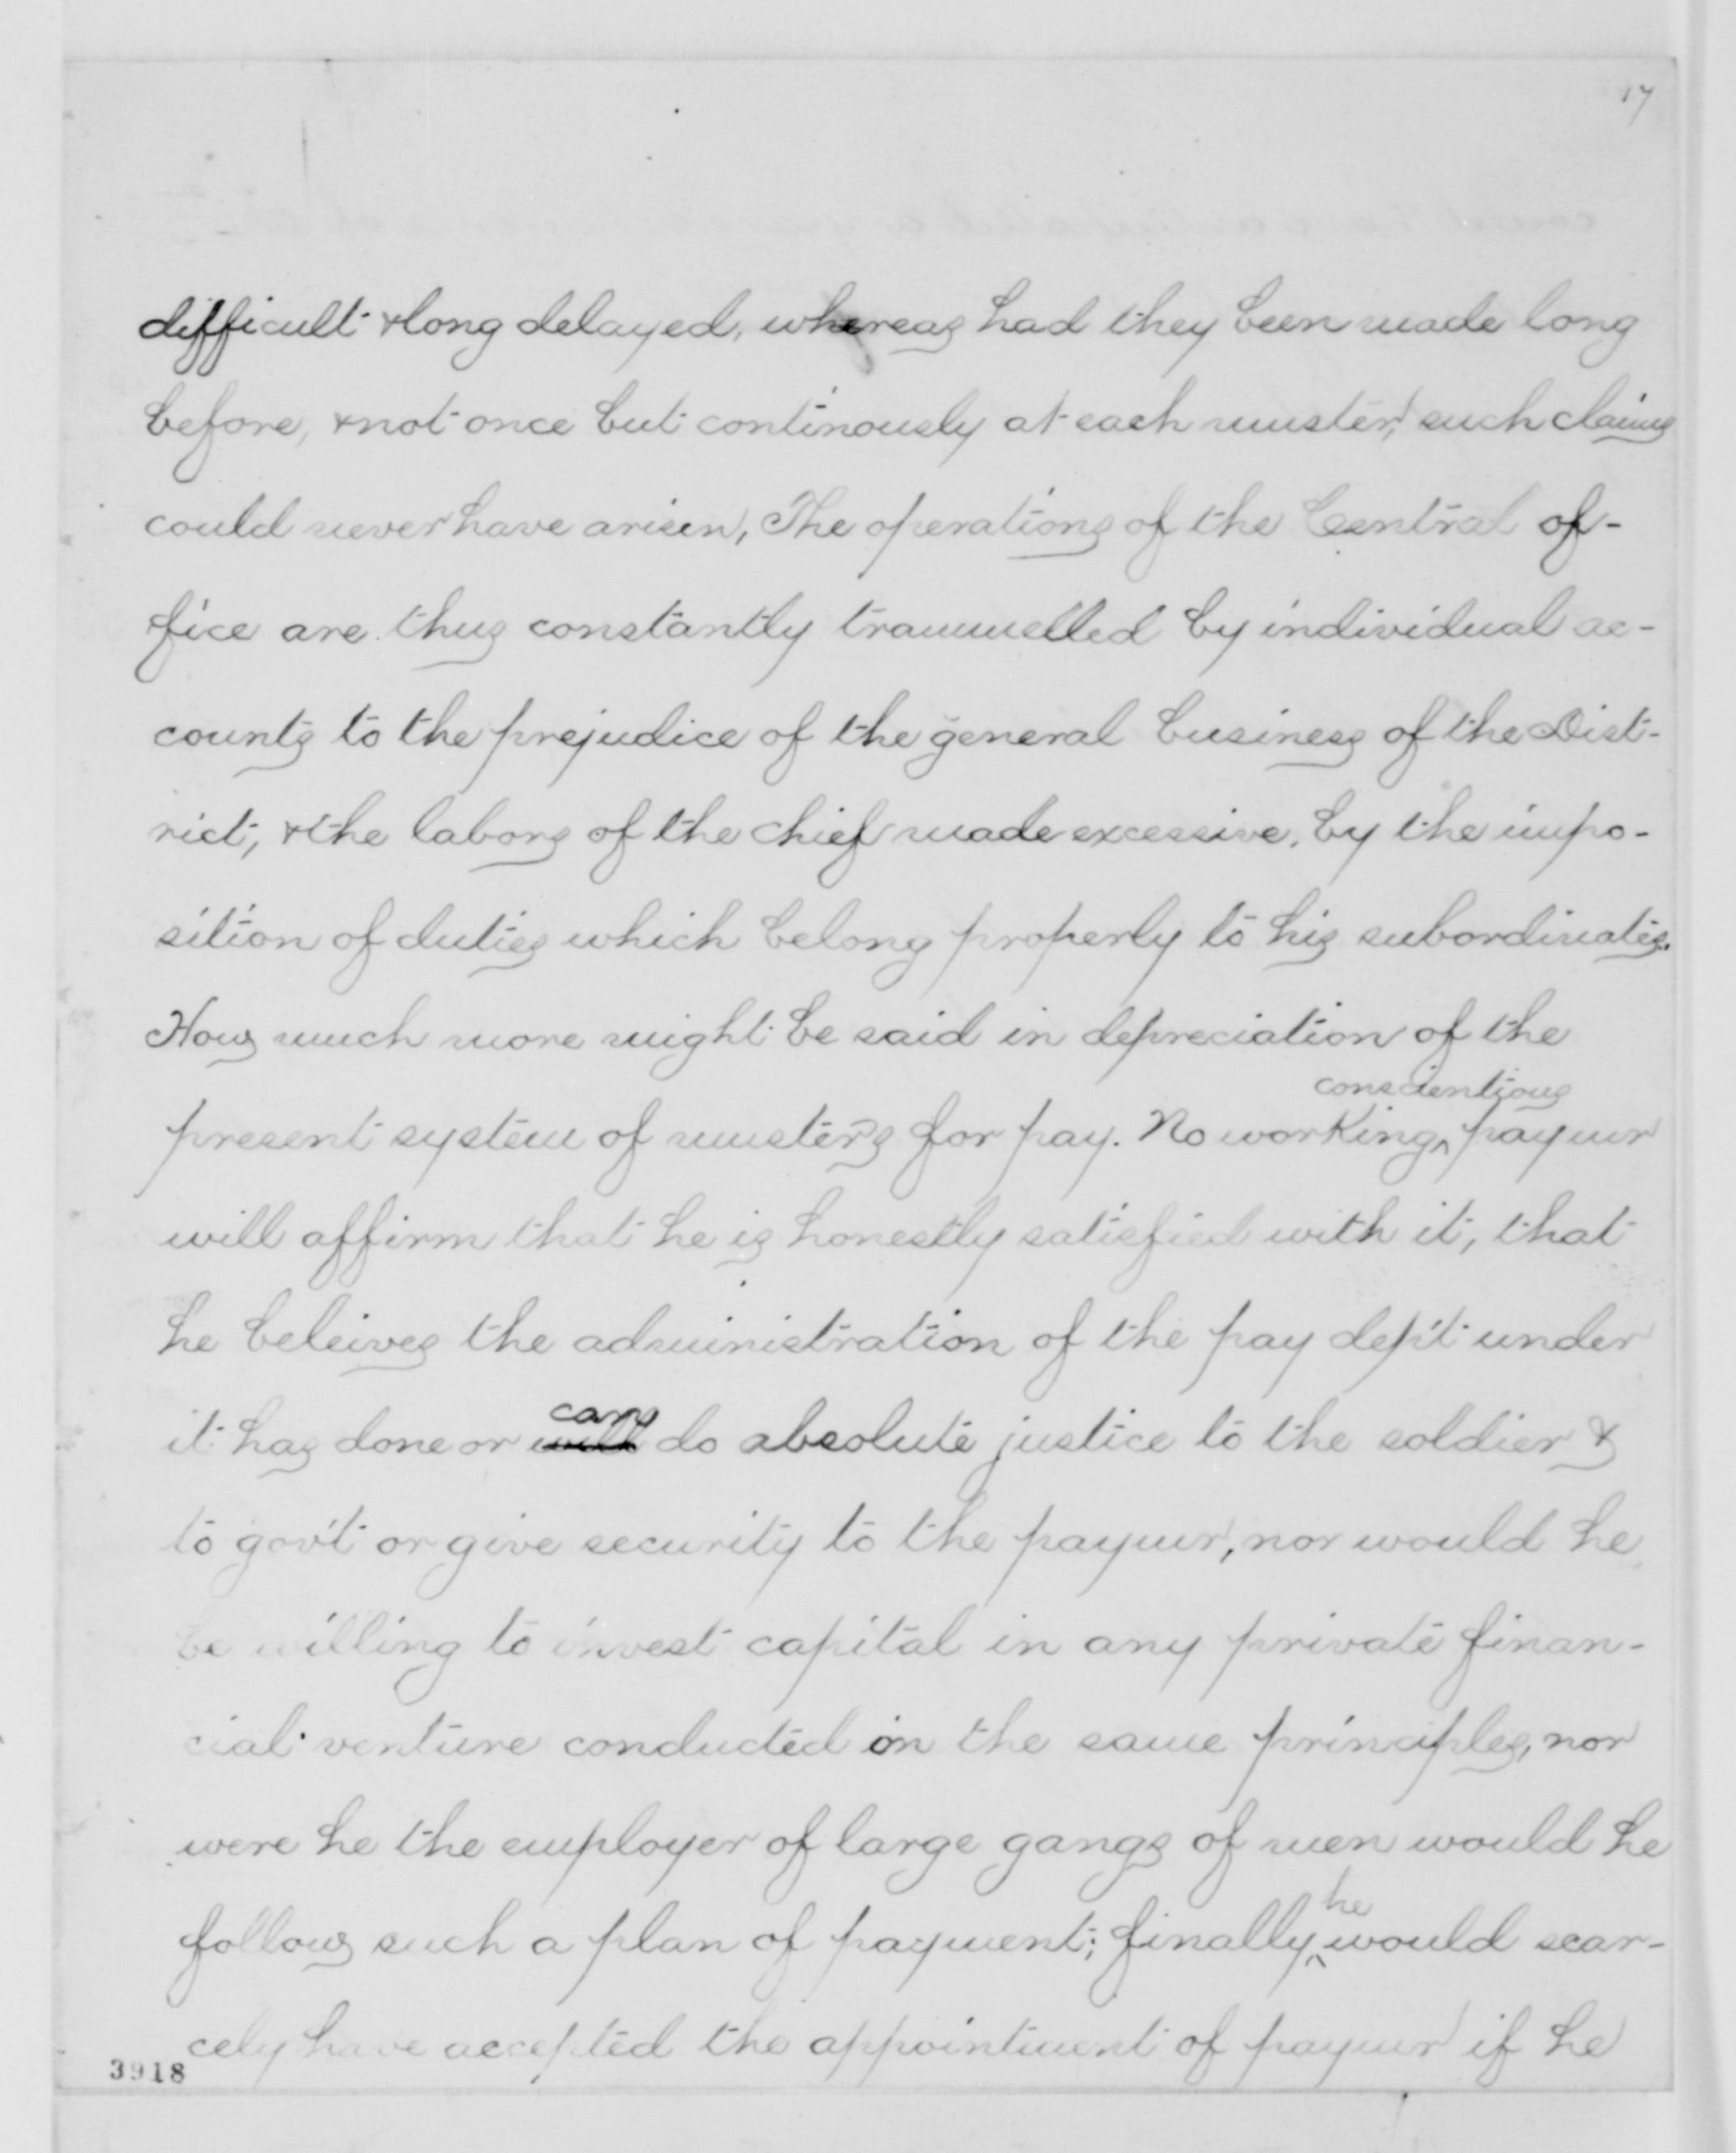 17
difficult & long delayed, whereas had they been made long
before, & not once but continously at each muster, such claims
could never have arisen, The operations of the Central of-
fice are thus constantly trammelled by individual ac-
counts to the prejudice of the general business of the Dist-
rict, & the labors of the chief made excessive, by the impo-
sition of duties which belong properly to his subordinates.
How much more might be said in depreciation of the
conscientious
present system of musters for pay. No working ^ paymr
will affirm that he is honestly satisfied with it, that
he beleives the administration of the pay dep't under
can
it has done or will do absolute justice to the soldier &
to gov't or give security to the paymr, nor would he
be willing to invest capital in any private finan-
cial venture conducted on the same principles, nor
were he the employer of large gangs of men would he
he
follow such a plan of payment; finally ^ would scar-
cely have accepted the appointment of paymr if he
3918